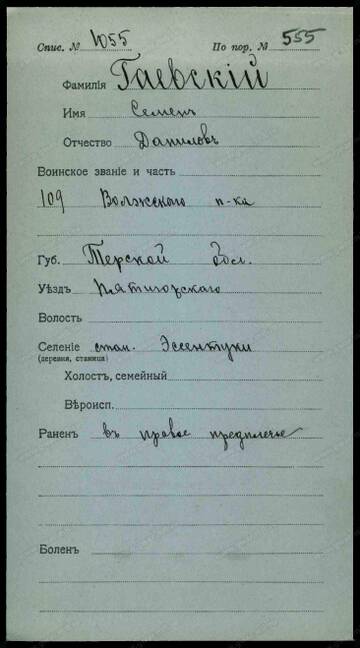 Спис. № 1055 По пор. № 555
Фамилія Гаевскій
Имя Семенъ
Отчество Даниловъ
Воинское званіе и часть
109 Волжскаго п-ка
Губ. Терской обл.
Уѣздъ Пятигорскаго
Волость
Селеніе стан. Эссентуки
(деревня, станица)
Холостъ, семейный
Вѣроисп.
Раненъ въ правое предплечье
Боленъ